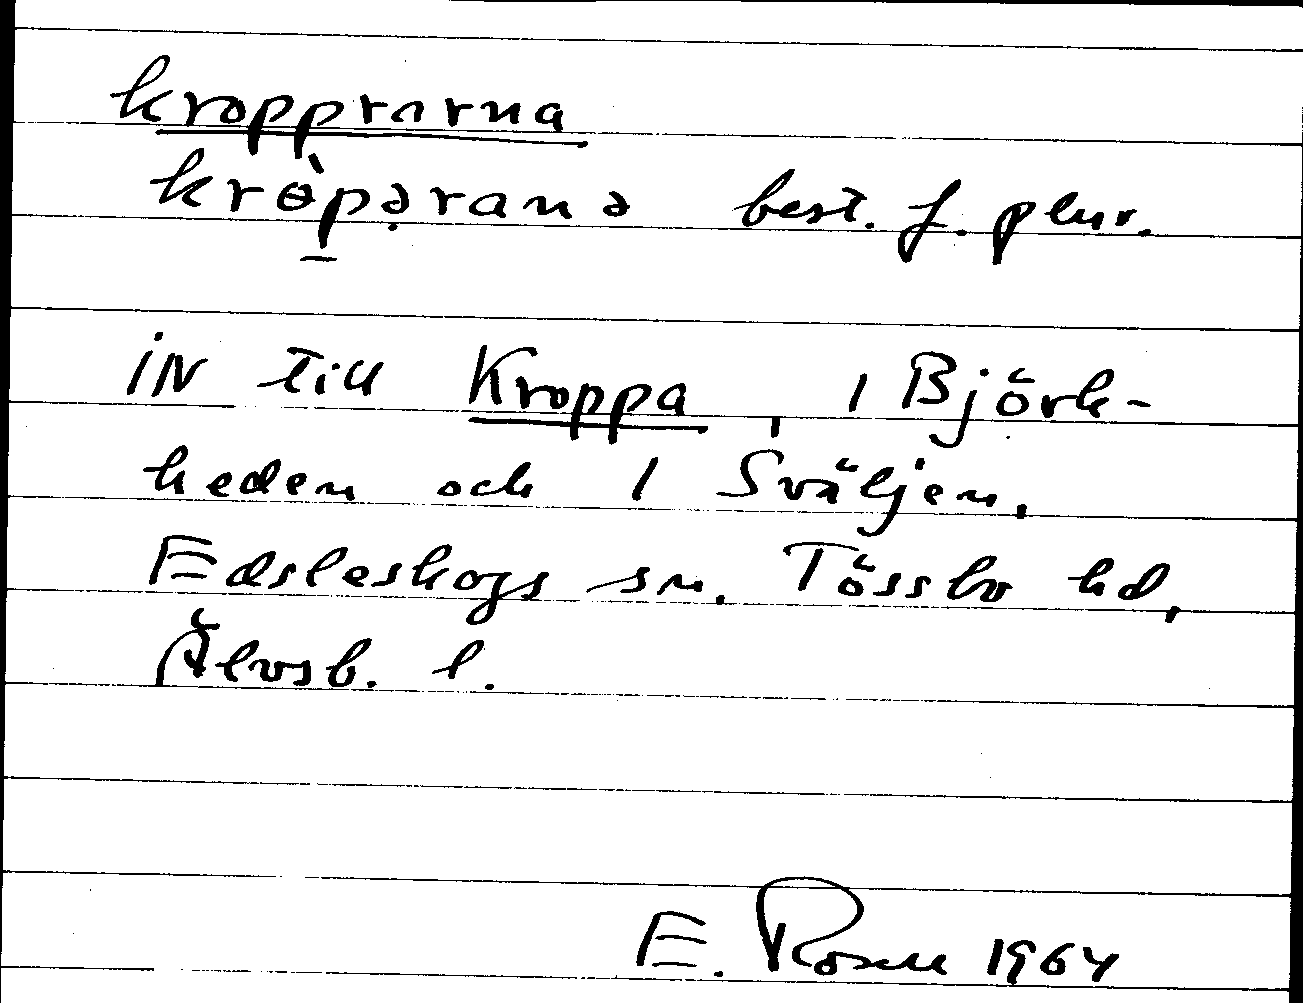 kropprarna
krɵ̀pə̣ranə best. f. plur.
IN till Kroppa, 1 Björk-
heden och 1 Sväljen,
Edsleskogs sn. Tössbo hd,
Älvsb. l.
E. Rosell 1964